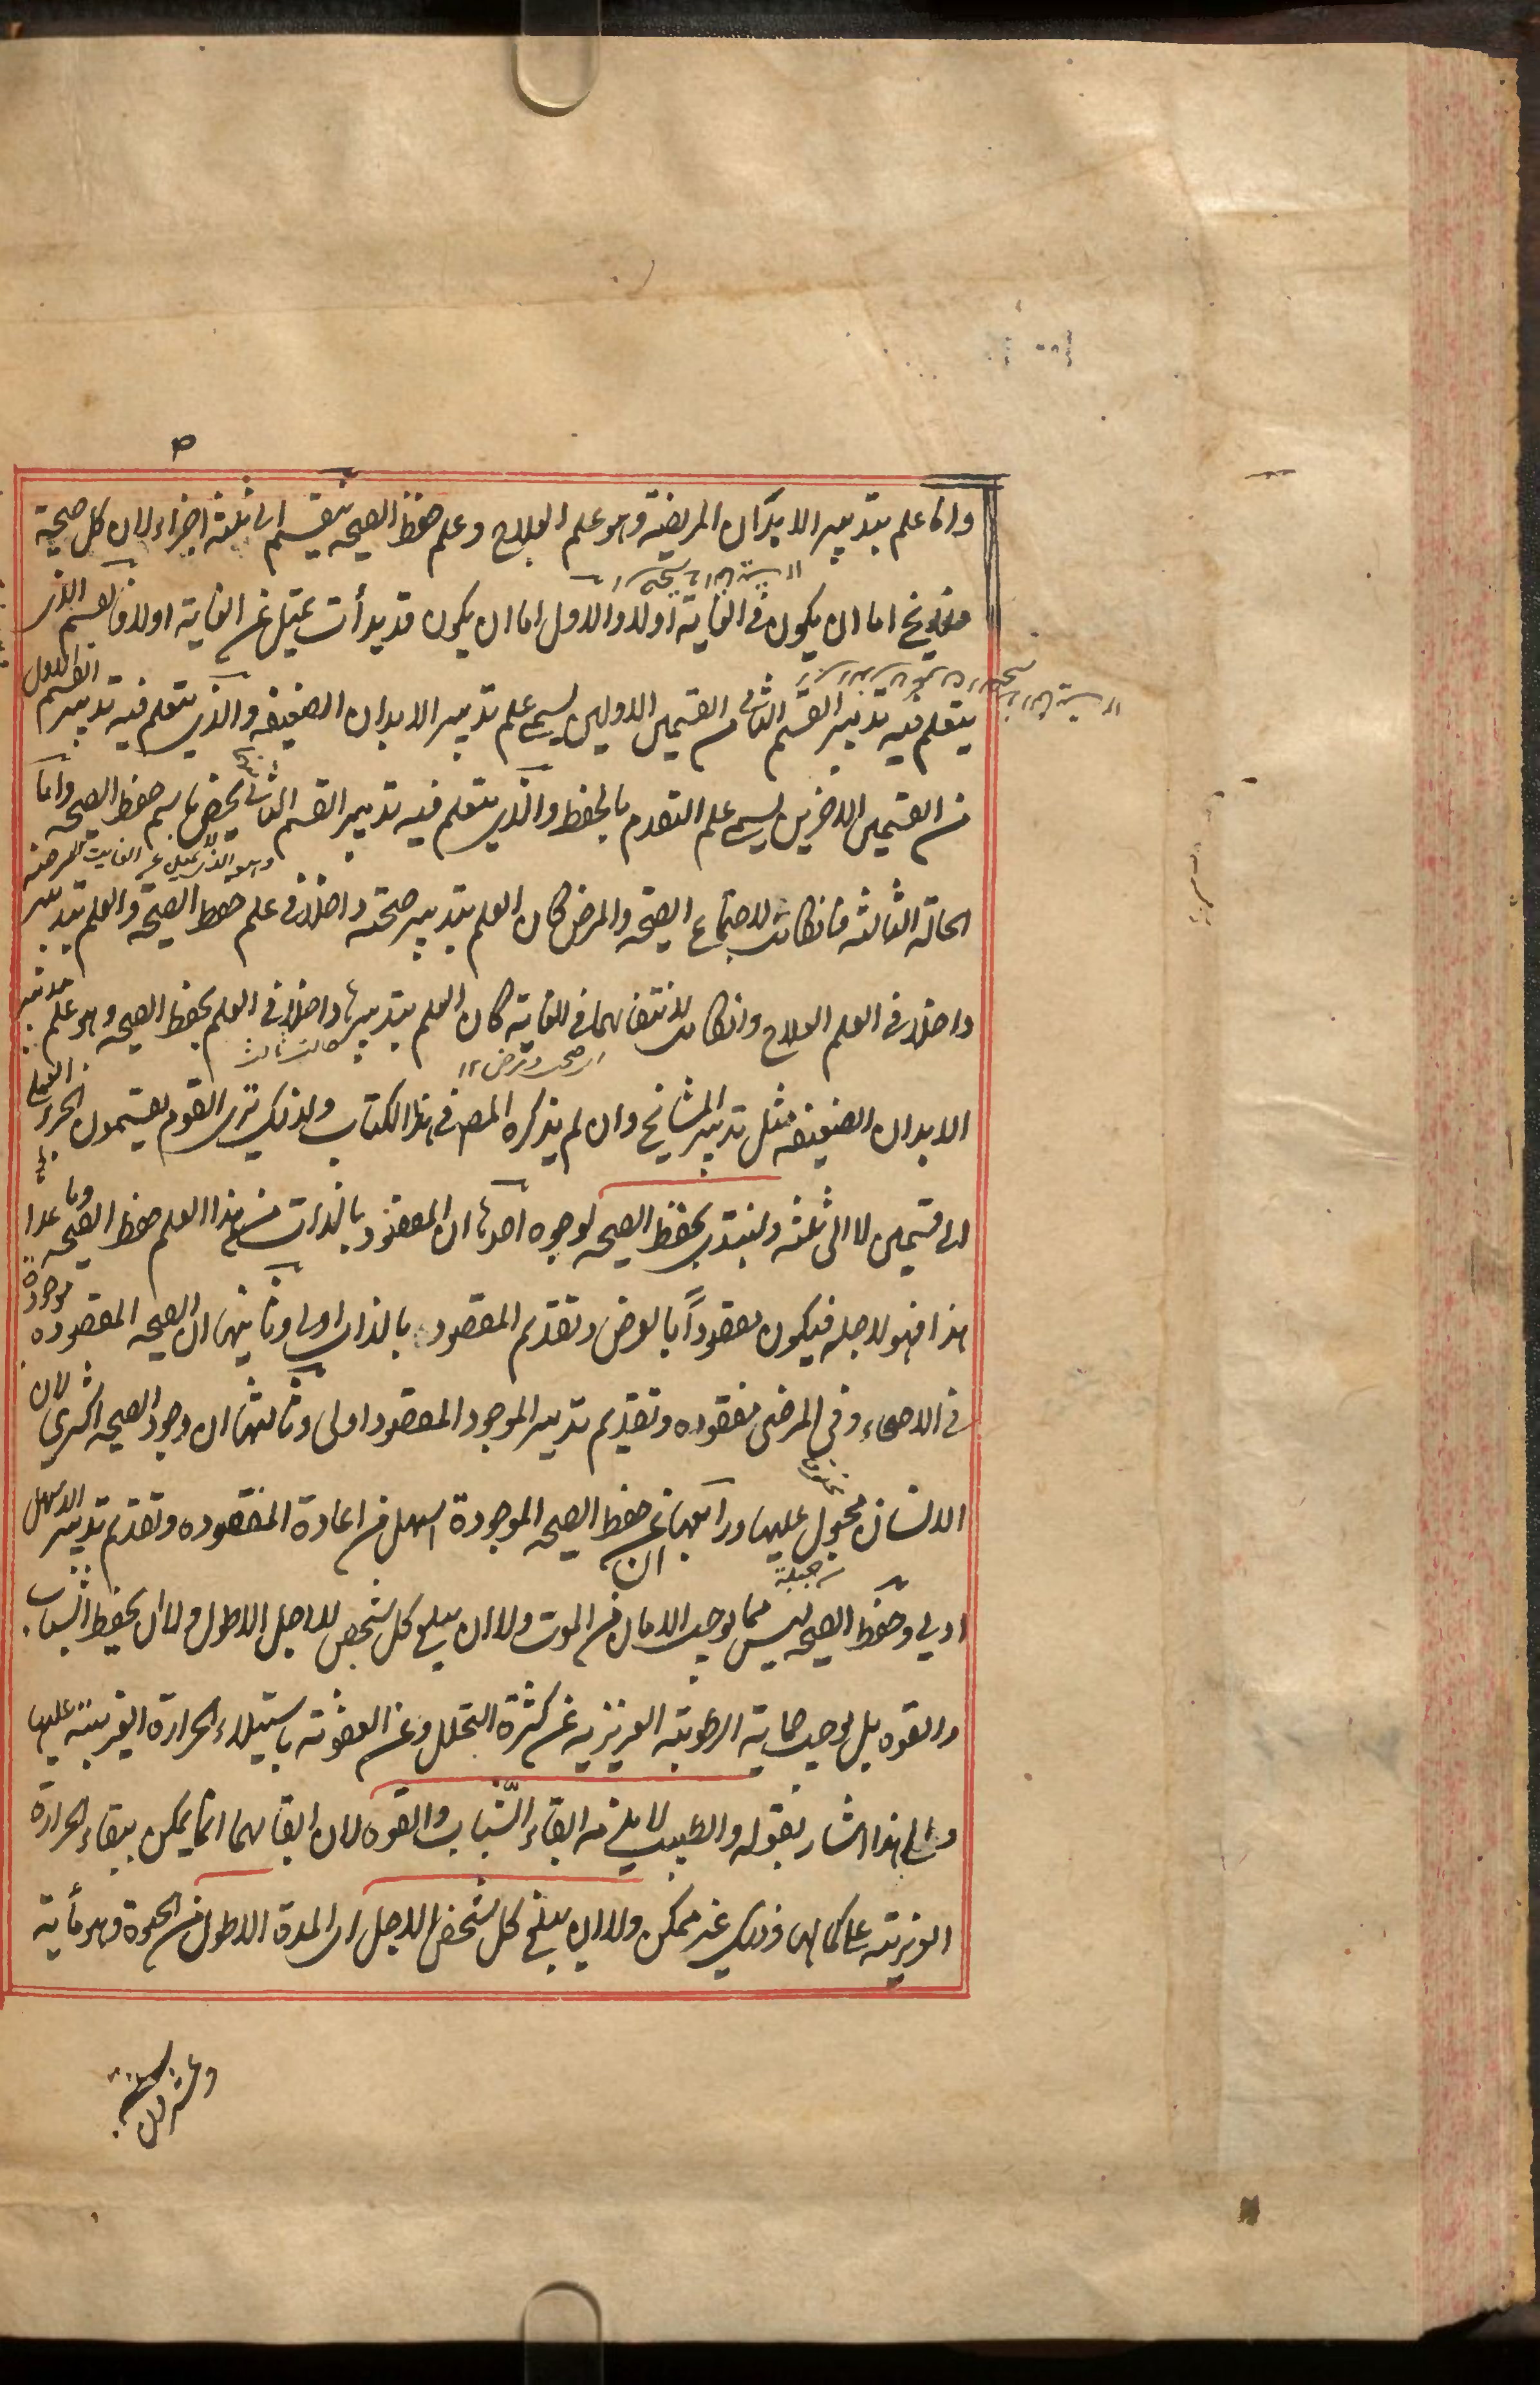 واما علم بتدبير الابدان المريضة وهو علم العلاج وعلم حفظ الصحه ينقسم الى ثلثة اجزاء لان كل صحية
فلا يخ اما ان يكون فى الغاية اولا والاول اما ان يكون قد بدأت تميل عن الغاية اولا فالقسم الذى
يتعلم فيه تدبير القسم الثانى من القسمين الاولين يسمى علم تدبير الابدان الضعيفه والذى يتعلم فيه تدبير القسم الاول
من القسمين الاخرين يسمى علم التقدم بالحفظ والذى يتعلم فيه تدبير القسم الثانى يخص باسم حفظ الصحه واما
وهو الذى لا تميل عن الغايت
الحالة الثالثه فانكانت لاجتماع الصحة والمرض كان العلم بتدبير صحته داخلا فى علم حفظ الصحة والعلم بتدبير مرضه
داخلا فى العلم العلاج وانكانت لانتفائهما فى الغاية كان العلم بتدبيرها داخلا فى العلم بحفظ الصحه وهو علم تدبير
اى صحت ومرض ١٢
حالت ثالث
الابدان الضعيفه مثل تدبير المشايخ وان لم يذكره المصـ فى هذا الكتاب ولذلك ترى القوم يقسمون الجزء العملى
الى قسمين لا الى ثلثه ولنبتدى بحفظ الصحه لوجوه احدها ان المقصود بالذات من هذا العلم حفظ الصحه وما عدا
هذا فهو لاجله فيكون مقصوداً بالعرض وتقديم المقصود بالذات اولى وثانيها ان الصحه المقصوده موجودة
فى الاصحاء وفى المرضى مفقوده وتقديم تدبير الموجود المقصود اولى وثالثها ان وجود الصحه اكثرى لان
الانسان مجبول عليها ورابعها ان حفظ الصحه الموجودة اسهل من اعادة المفقوده وتقديم تدبير الاسهل
من جبلة
اولى وحفظ الصحه ليس مما يوجب الامان من الموت ولا ان يبلغ كل شخص للاجل الاطول ولا ان يحفظ الشباب
والقوه بل يوجب حماية الرطوبته الغريزيه عن كثرة التحلل وعن العفونة باستيلاء الحرارة الغريبة عليها
والى هذا اشار بقوله والطبيب لا يلزمه ابقاء الشّباب والقوه لان ابقائهما انما يمكن ببقاء الحرارة
الغريزيته على كمالها وذلك غير ممكن ولا ان يبلغ كل شخص الاجل اى المدة الاطول من الحيوة وهو مأية
وعشرون سنة